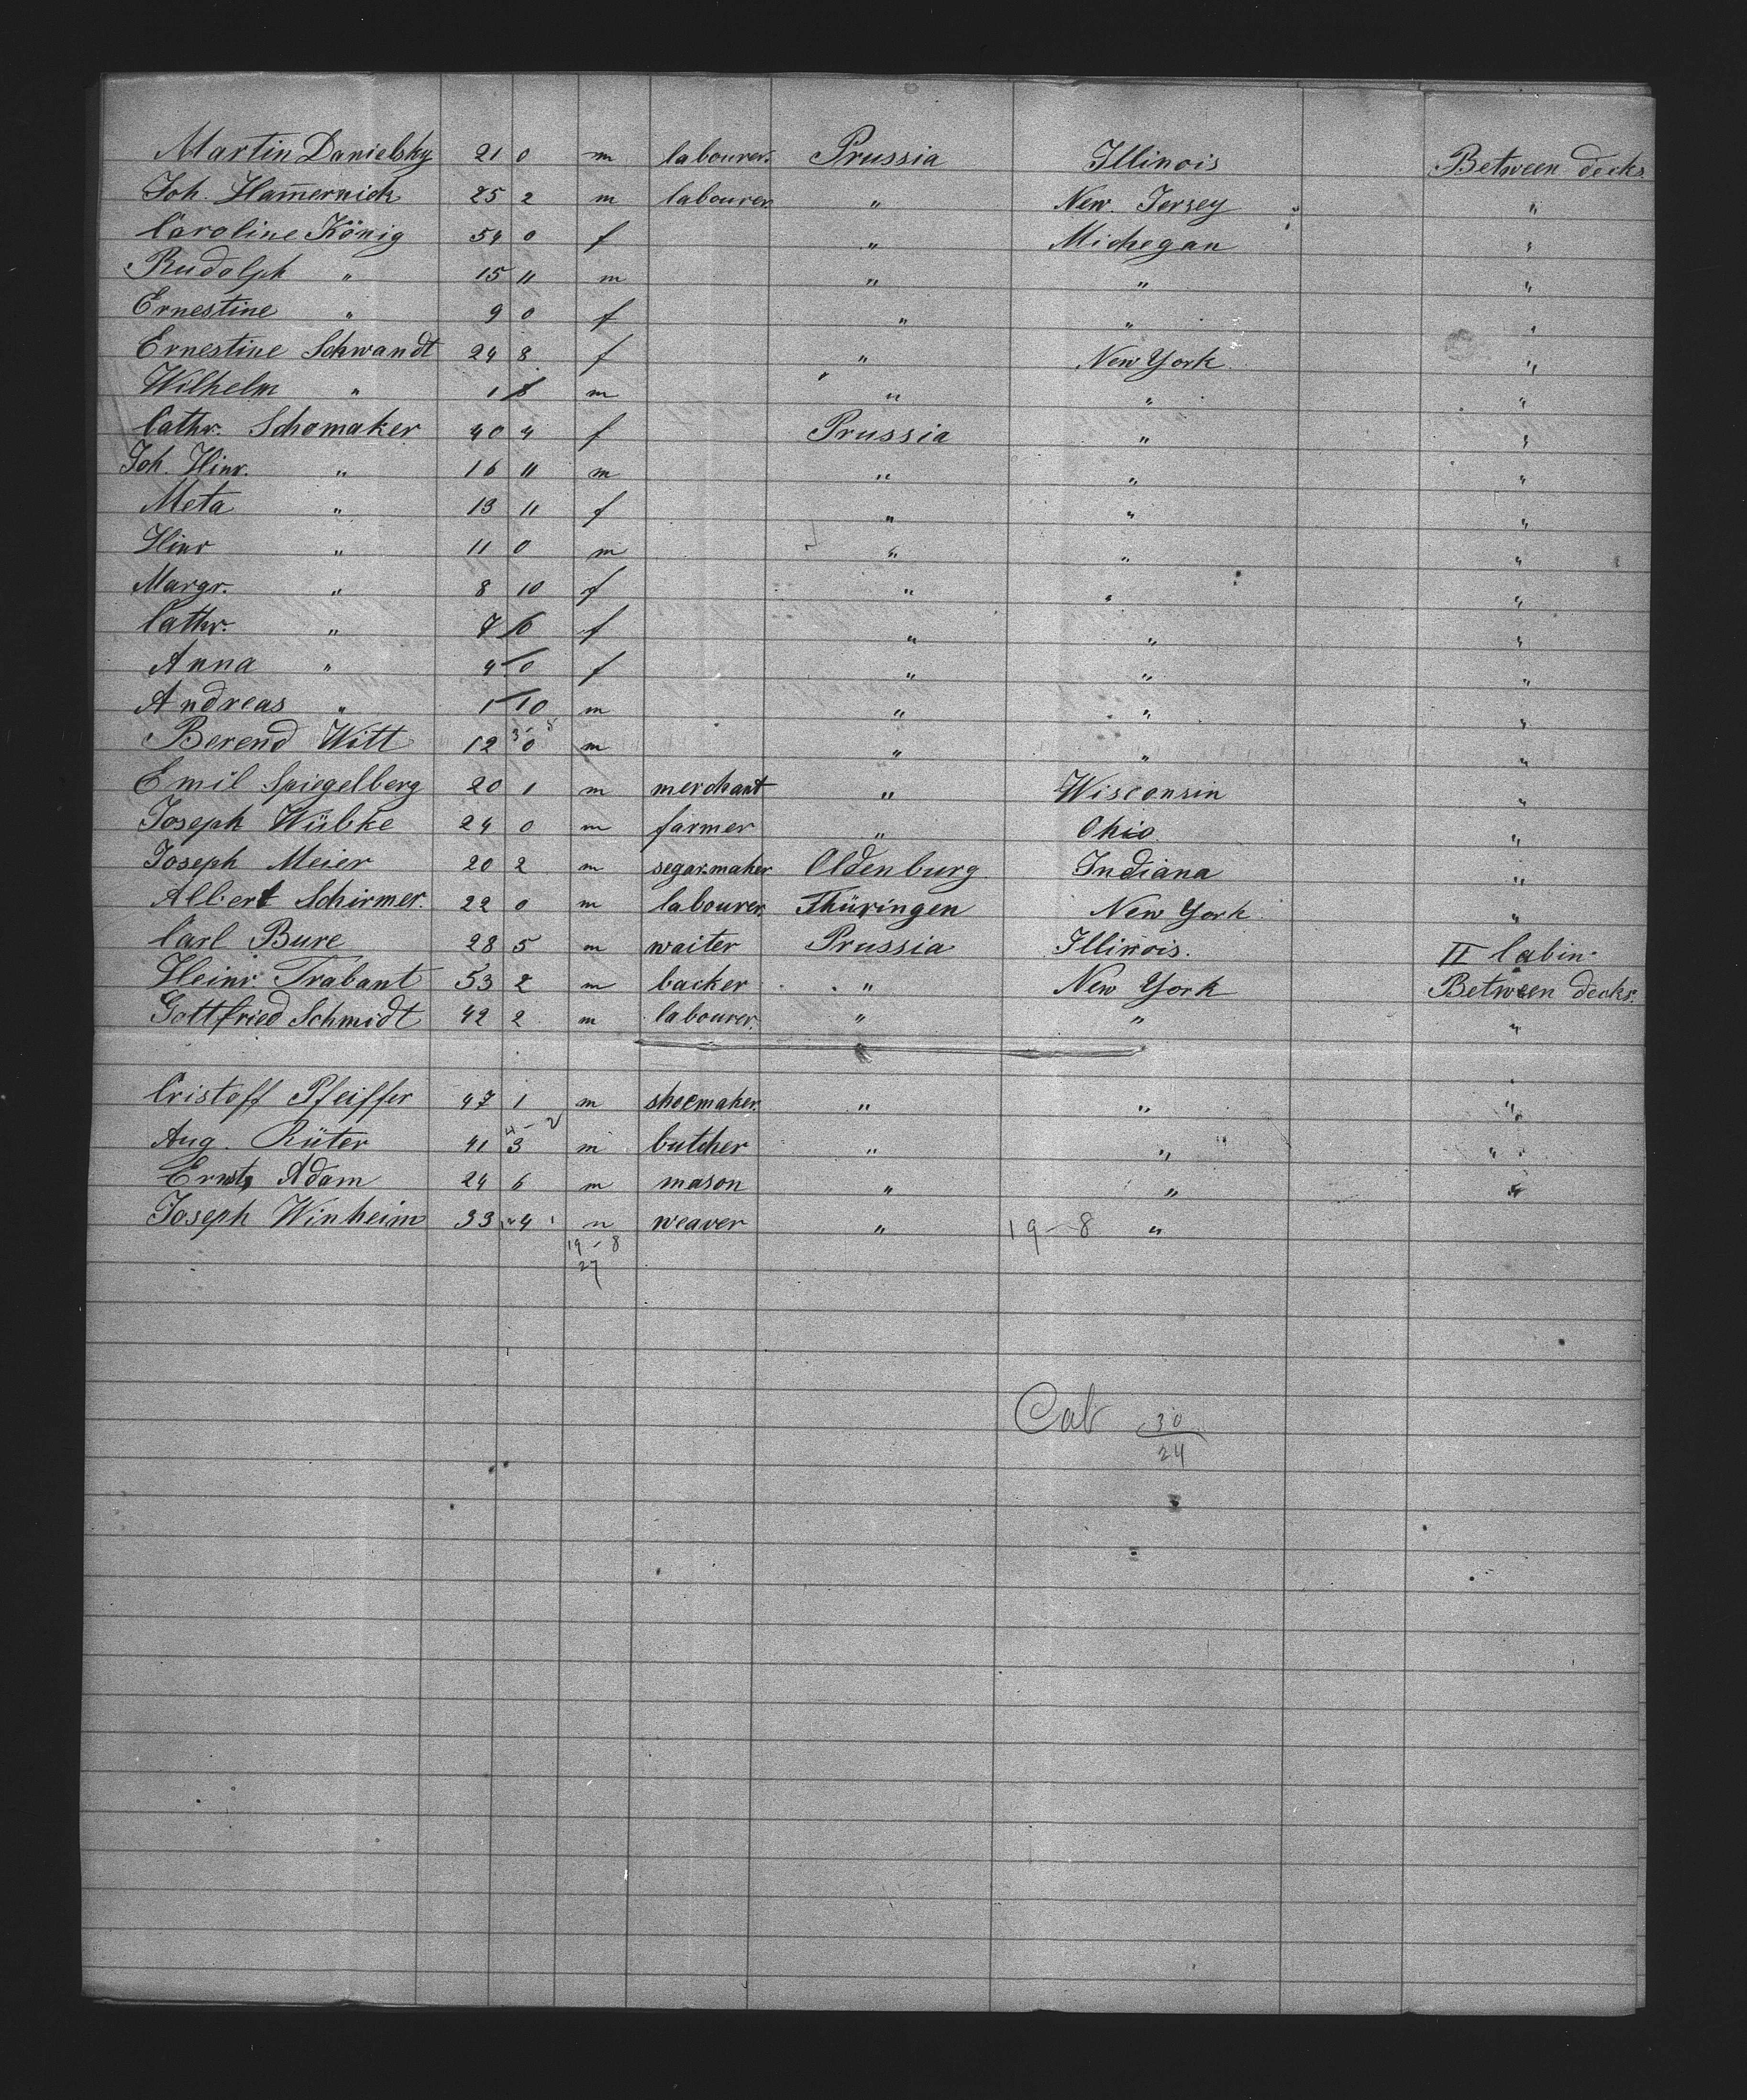 Martin Danielsky 21 0 m labourer. Prussia Illinois Between decks
Joh. Ham̅ernick 25 2 m labourer " New Jersey "
Caroline König 54 0 f " Michegan "
Rudolph " 15 11 m " " "
Ernestine " 9 0 f " " "
Ernestine Schwandt 24 8 f " New York "
Wilhelm " 1 m " " "
Cathr. Schomaker 40 4 f Prussia " "
Joh. Hinr. " 16 11 m " " "
Meta " 13 11 f " " "
Hinr " 11 0 m " " "
Margr. " 8 10 f " " "
Cathr. " 7 f " " "
Anna " 4 0 f " " "
Andreas " 1 10 m " " "
Berend Witt 12 0 m " " "
Emil Spiegelberg 20 1 m merchant " Wisconsin "
Joseph Wübke 24 0 m farmer " Ohio "
Joseph Meier 20 2 m segar.maker Oldenburg Indiana "
Albert Schirmer. 22 0 m labourer. Thüringen New York "
Carl Bure 28 5 m waiter Prussia Illinois. II Cabin.
Heinr. Trabant 53 2 m backer " New York Between decks.
Gottfried Schmidt 42 2 m labourer. " " "
Cristoff Pfeiffer 47 1 m shoemaker. " " "
Aug. Rüter 41 3 m butcher " " "
Ernst Adam 24 6 m mason " " "
Joseph Winheim 33 4 m weaver " 19-8 "
19-8
27
Cab 30
24